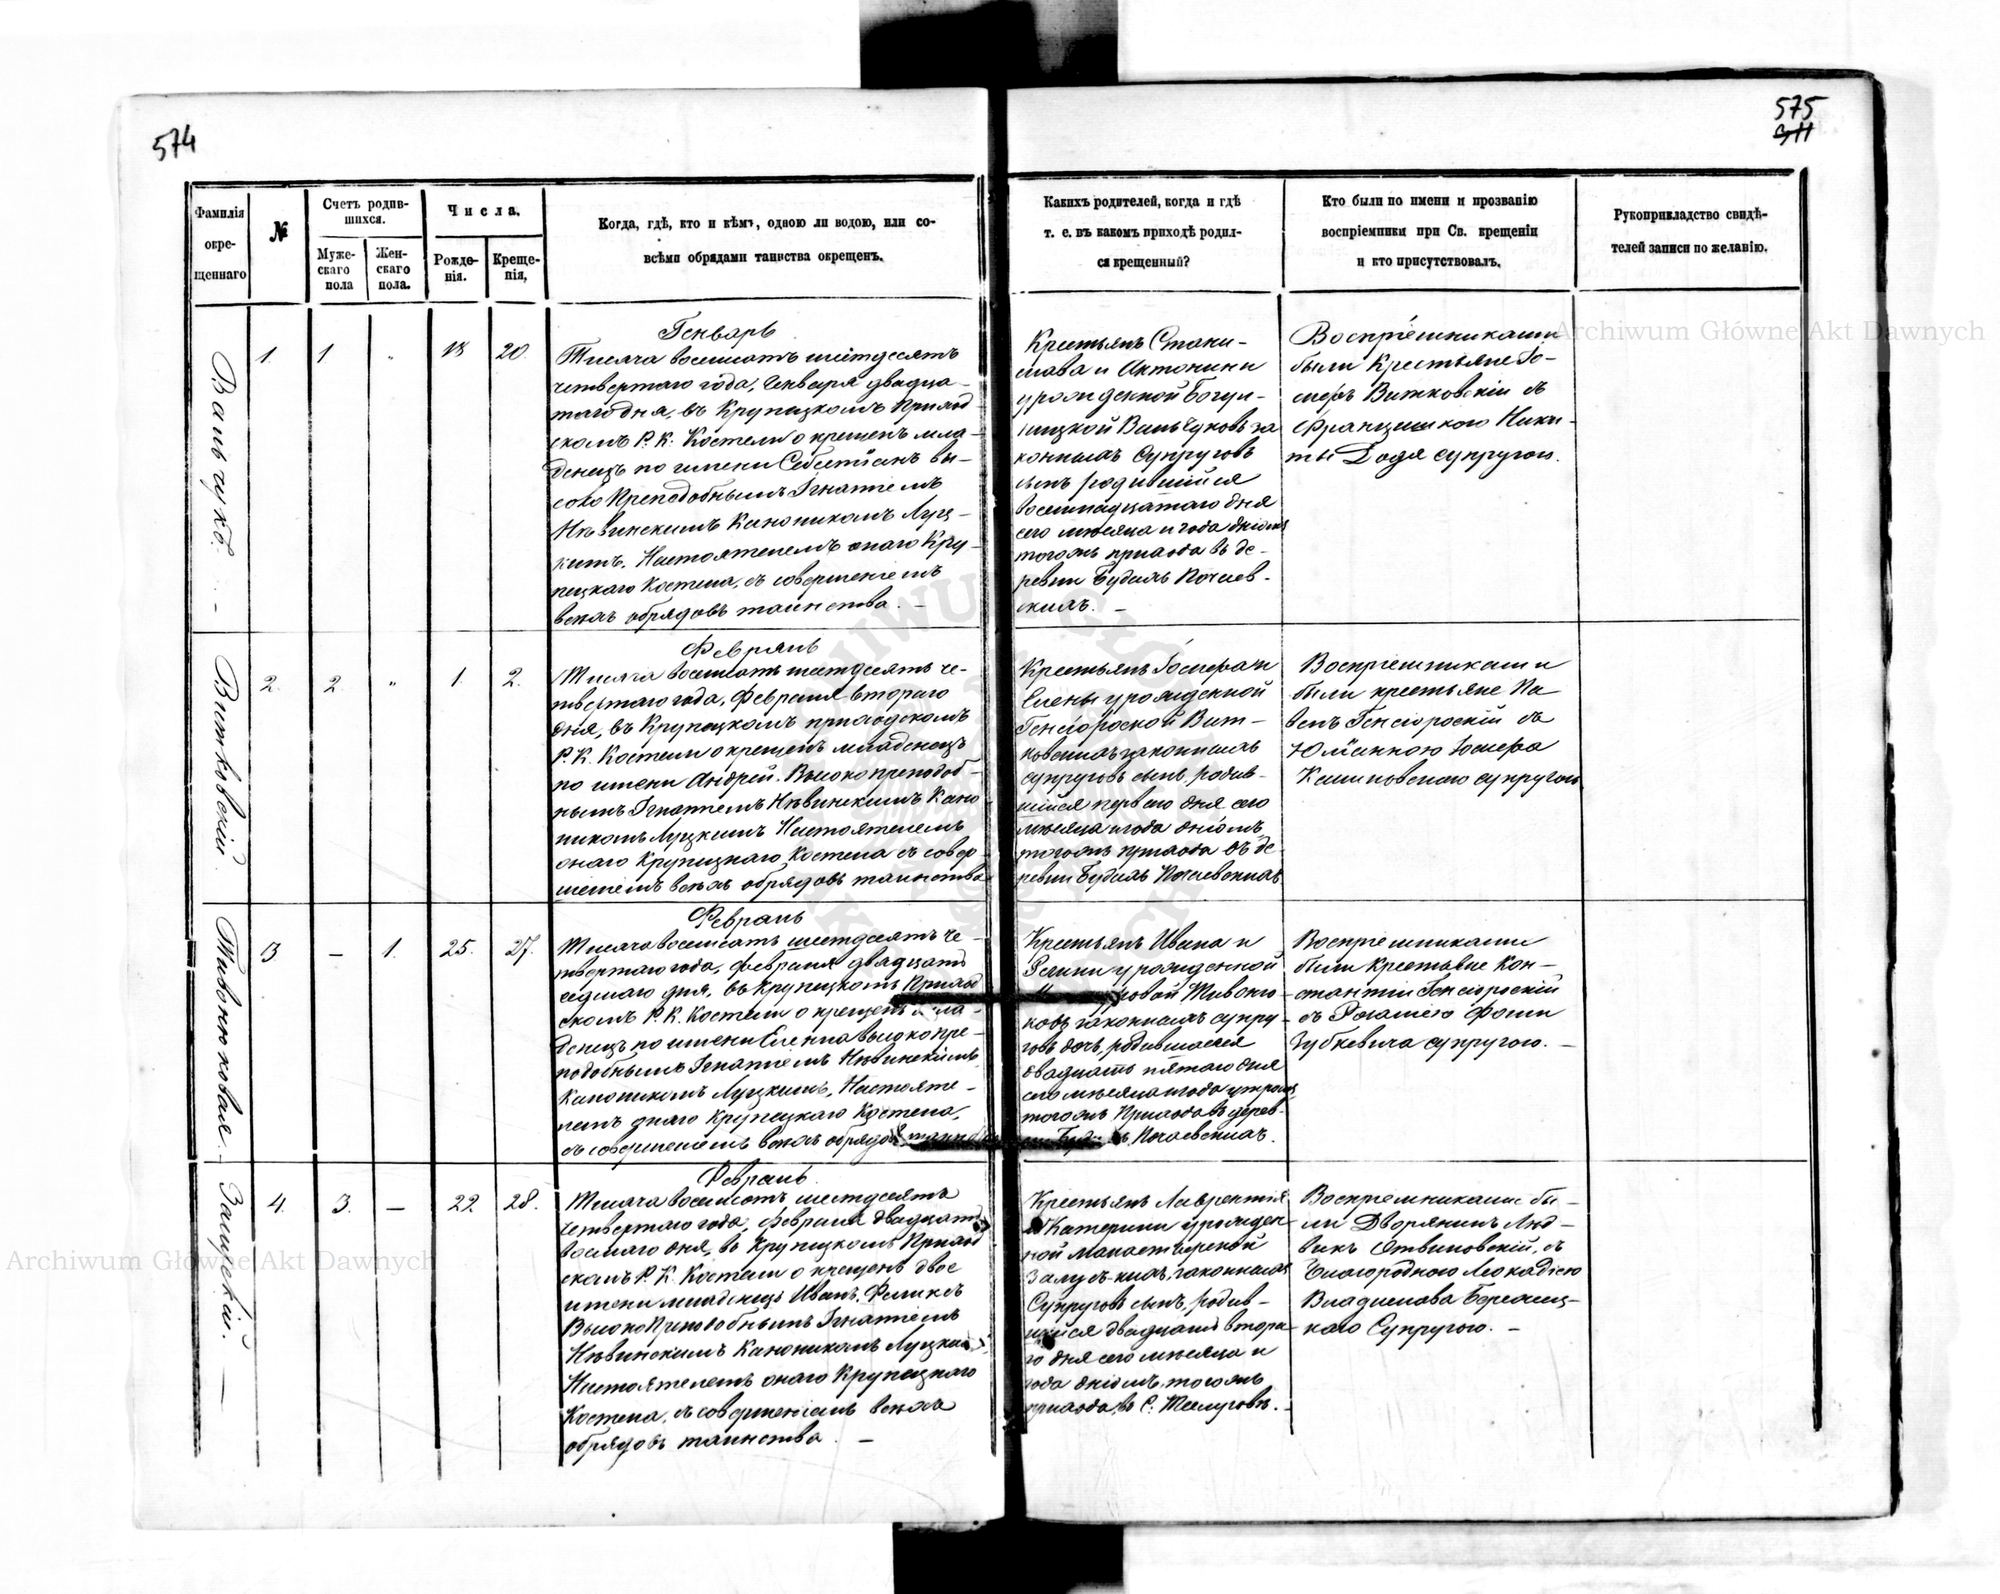 574
575
311
Фамилія окре-щеннаго
№
Счетъ родив-шихся.
Муже-скаго пола
Жен-скаго пола.
Числа.
Рожде-нія.
Креще-нія,
Когда, гдѣ, кто и кѣмъ, одною ли водою, или со-
всѣми обрядами таинства окрещенъ.
Какихъ родителей, когда и гдѣ
т. е. въ какомъ приходѣ родил-
ся крещенный?
Кто были по имени и прозванію
воспріемники при Св. крещеніи
и кто присутствовалъ.
Рукоприкладство свидѣ-
телей записи по желанію.
Ваньчукъ.
1. 1 " 18 20
Генварь
Тысяча восемсотъ шестдесятъ
четвертаго года, Генваря двадца-
таго дня, въ Крупецкомъ Приход-
скомъ Р. К. Костели окрещенъ мла-
денецъ по имени Себестіанъ вы-
соко Преподобнымъ Игнатіемъ
Нѣвинскимъ Каноникомъ Луц-
кимъ. Настоятелемъ онаго Кру-
пецкаго Костела, съ совершеніемъ
всехъ обрядовъ таинства. —
Крестьянъ Стани-
слава и Антонины
урожденной Богуц-
Ваньчуковъ за
конныхъ Супруговъ
сынъ родившійся
восемнадцатаго дня
сего мѣсяца и года
тогожъ прихода въ де-
ревни Будкахъ Почаев-
скихъ. —
Воспріемниками
были Крестьяне Іо-
сифъ Витковскій съ
Францишкою Ники-
ты Дадя супругою.
Витковскій.
2. 2. " 1. 2.
Февраль
Тысяча восемсотъ шестдесятъ че-
твертаго года, Февраля втораго
дня, въ Крупецкомъ приходскомъ
Р. К. Костели окрещенъ младенецъ
по имени Андрей. Высокопреподоб-
нымъ Игнатіемъ Нѣвинскимъ Кано-
никомъ Луцкимъ Настоятелемъ
онаго Крупецкаго Костела съ совер-
шеніемъ всехъ обрядовъ таинства
Крестьянъ Іосифа и
Елены урожденной
Генсіоровской Вит-
ковскихъ законныхъ
супруговъ сынъ, родив-
шійся перваго дня сего
мѣсяца и года
тогожъ прихода въ де-
ревни Будкахъ Почаевскихъ
Воспріемниками
были крестьяне Па-
велъ Генсіоровскій съ
Юліанною Іосифа
супругою
Тивонюковая.
3 — 1. 25. 27.
Февраль
Тысяча восемсотъ шестдесятъ че-
твертаго года, Февраля двадцать
седмаго дня, въ Крупецкомъ Приход
скомъ Р. К. Костели окрещенъ мла-
денецъ по имени Еленна высокопре-
подобнымъ Игнатіемъ Нѣвинскимъ
Каноникомъ Луцкимъ, Настояте-
лемъ онаго Крупецкаго Костела,
съ совершеніемъ всехъ обрядовъ
Крестьянъ Ивана и
урожденной
Тивоню-
ковъ законныхъ супру-
говъ дочь, родившаяся
двадцать пятаго дня
сего мѣсяца и года
тогожъ Прихода въ дерев-
Почаевскихъ.
Воспріемниками
были Крестьяне Кон-
стантій Генсіоровскій
съ Розаліею Фомы
Губкевича супругою. —
Залускій. —
4. 3. — 22 28.
Февраль.
Тысяча восемсотъ шестдесятъ
четвертаго года, Февраля двадцать
восмаго дня, въ Крупецкомъ Приход
скомъ Р. К. Костели окрещенъ двое
имени младенецъ Иванъ, Феликсъ
Высоко Преподобнымъ Игнатіемъ
Нѣвинскимъ Каноникомъ Луцким
Настоятелемъ онаго Крупецкаго
Костела, съ совершеніемъ всехъ
обрядовъ таинства. —
Крестьянъ Лаврентія
и Катерины урожден-
ной
Залускихъ, законныхъ
Супруговъ сынъ, родив-
шійся двадцать втора-
го дня сего мѣсяца и
года тогожъ
прихода, въ С.
Воспріемниками бы-
ли Дворянинъ Люд-
викъ Отвиновскій, съ
Благородною Леокадіею
Владислава Бережец-
каго Супругою. —
Archiwum Główne Akt Dawnych
Archiwum Główne Akt Dawnych